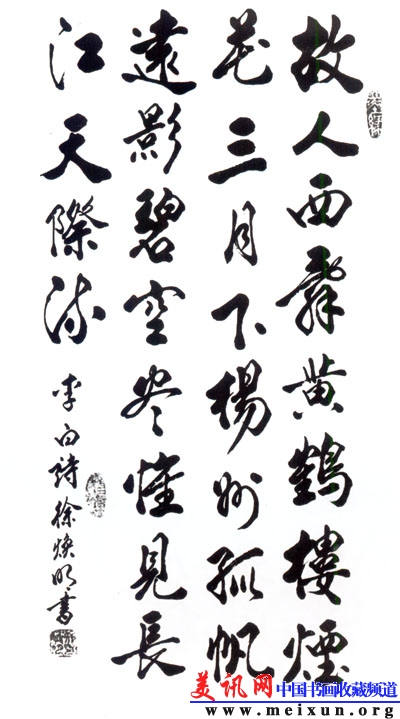 故人西辭黄鶴樓煙
花三月下楊州孤帆
遠影碧空尽惟見長
江天際流
李白詩徐焕明書
美讯网 中国书画收藏频道
www.meixun.org